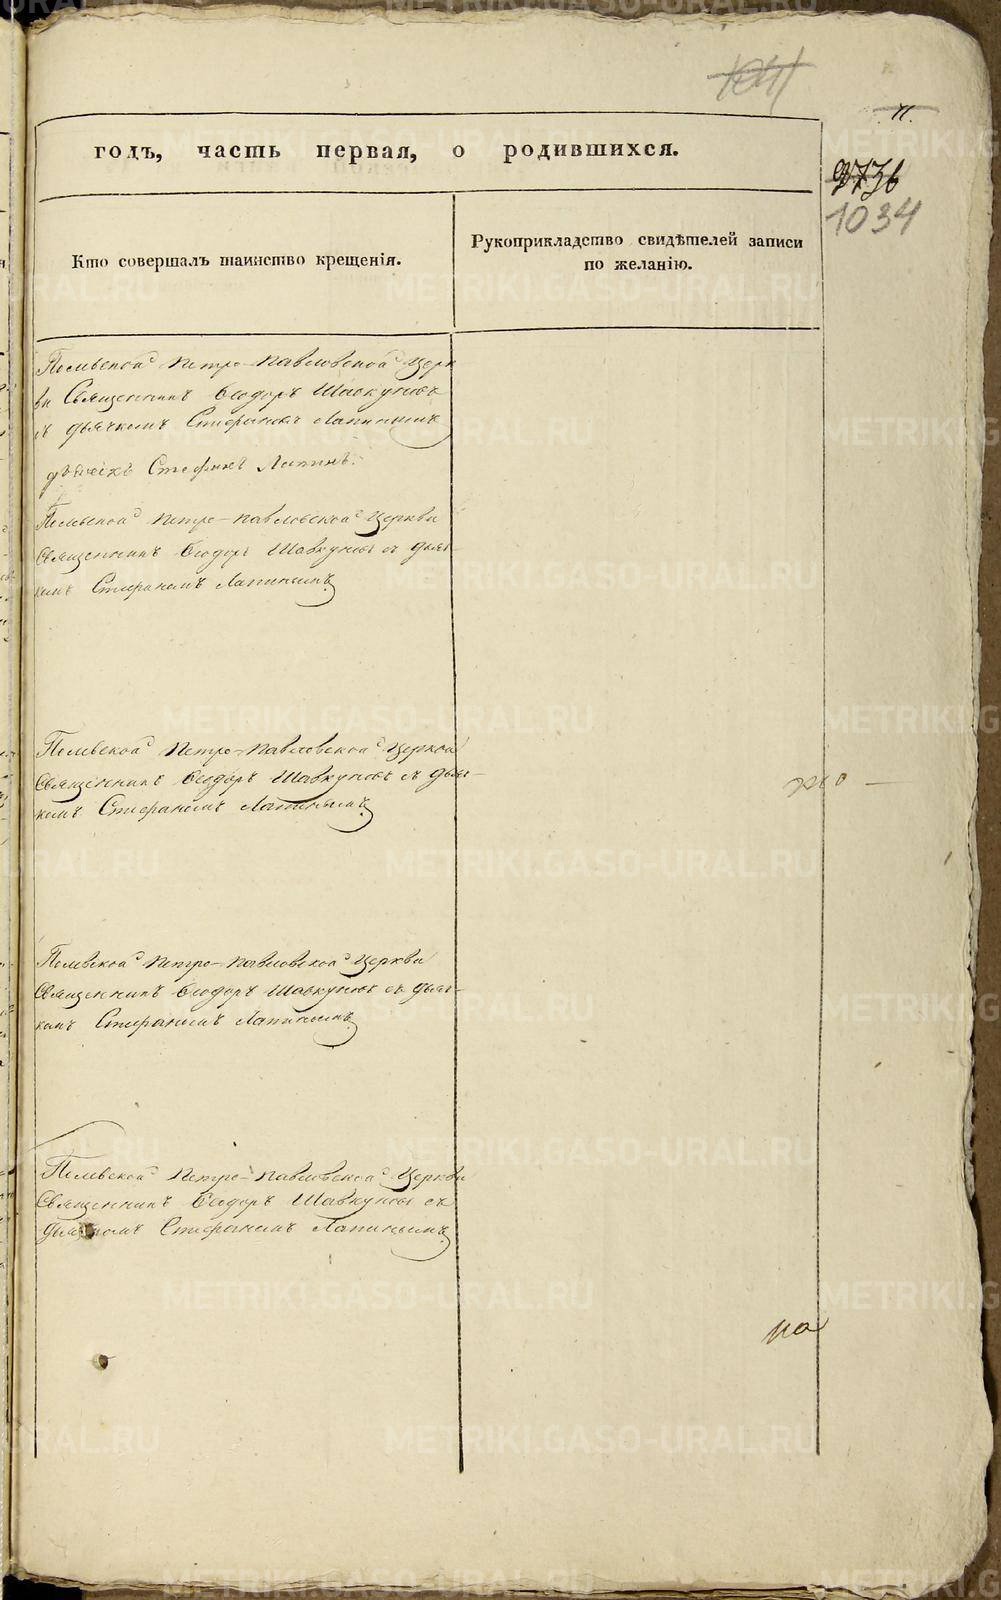 1041
11.
2736
1034
годъ, часть первая, о родившихся.
Кто совершалъ таинство крещенія.
Рукоприкладство свидѣтелей записи
по желанію.
Полевской Петро-Павловской Церк
ви Священникъ Ѳеодоръ Шавкуновъ
съ дьячкомъ Стефаномъ Лапинымъ
дьячекъ Стефанъ Лапинъ.
Полевской Петро-Павловской Церкви
Священникъ Ѳеодоръ Шавкуновъ съ дьяч-
комъ Стефаномъ Лапинымъ
Полевской Петро-Павловской Церкви
Священникъ Ѳеодоръ Шавкуновъ съ дьяч-
комъ Стефаномъ Лапинымъ
Полевской Петро-Павловской Церкви
Священникъ Ѳеодоръ Шавкуновъ съ дьяч-
комъ Стефаномъ Лапинымъ
Полевской Петро-Павловской Церкви
Священникъ Ѳеодоръ Шавкуновъ съ
дьячкомъ Стефаномъ Лапинымъ
на
METRIKI.GASO-URAL.RU